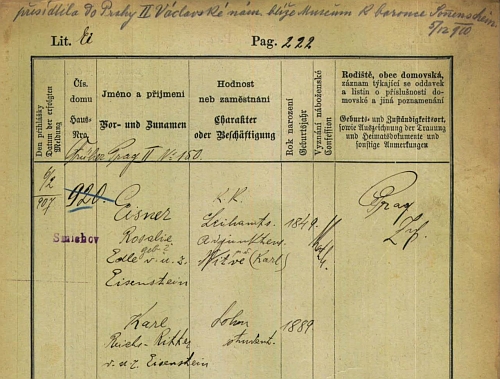 přesídlila do Prahy II Václavské nám. blíže Museum k baronce
5/12 910
Lit. Ei
Pag. 222
Den přihlášky
Datum der erfolgten Meldung
Čís. domu
Haus-Nro.
Jméno a příjmení
Vor- und Zunamen
Hodnost neb zaměstnání
Charakter oder Beschäftigung
Rok narození
Geburtsjahr
Vyznání náboženské
Confession
Rodiště, obec domovská,
záznam týkající se oddavek
a listin o příslušnosti do-
movské a jiná poznamenání
Geburts- und Zuständigkeitsort,
sowie Aufzeichnung der Trauung
und Heimatsdokumente und
sonstige Anmerkungen
Prag II No 150.
6/2
907
920
Smichov
Eisner
Rosalie
geb.
Edle v. u. z.
Eisenstein
k.k.
Adjunktens
Witwe (Karl)
1849
Prag
Karl
Reichs-Ritter
v. u. z. Eisenstein
Sohn
student.
1889